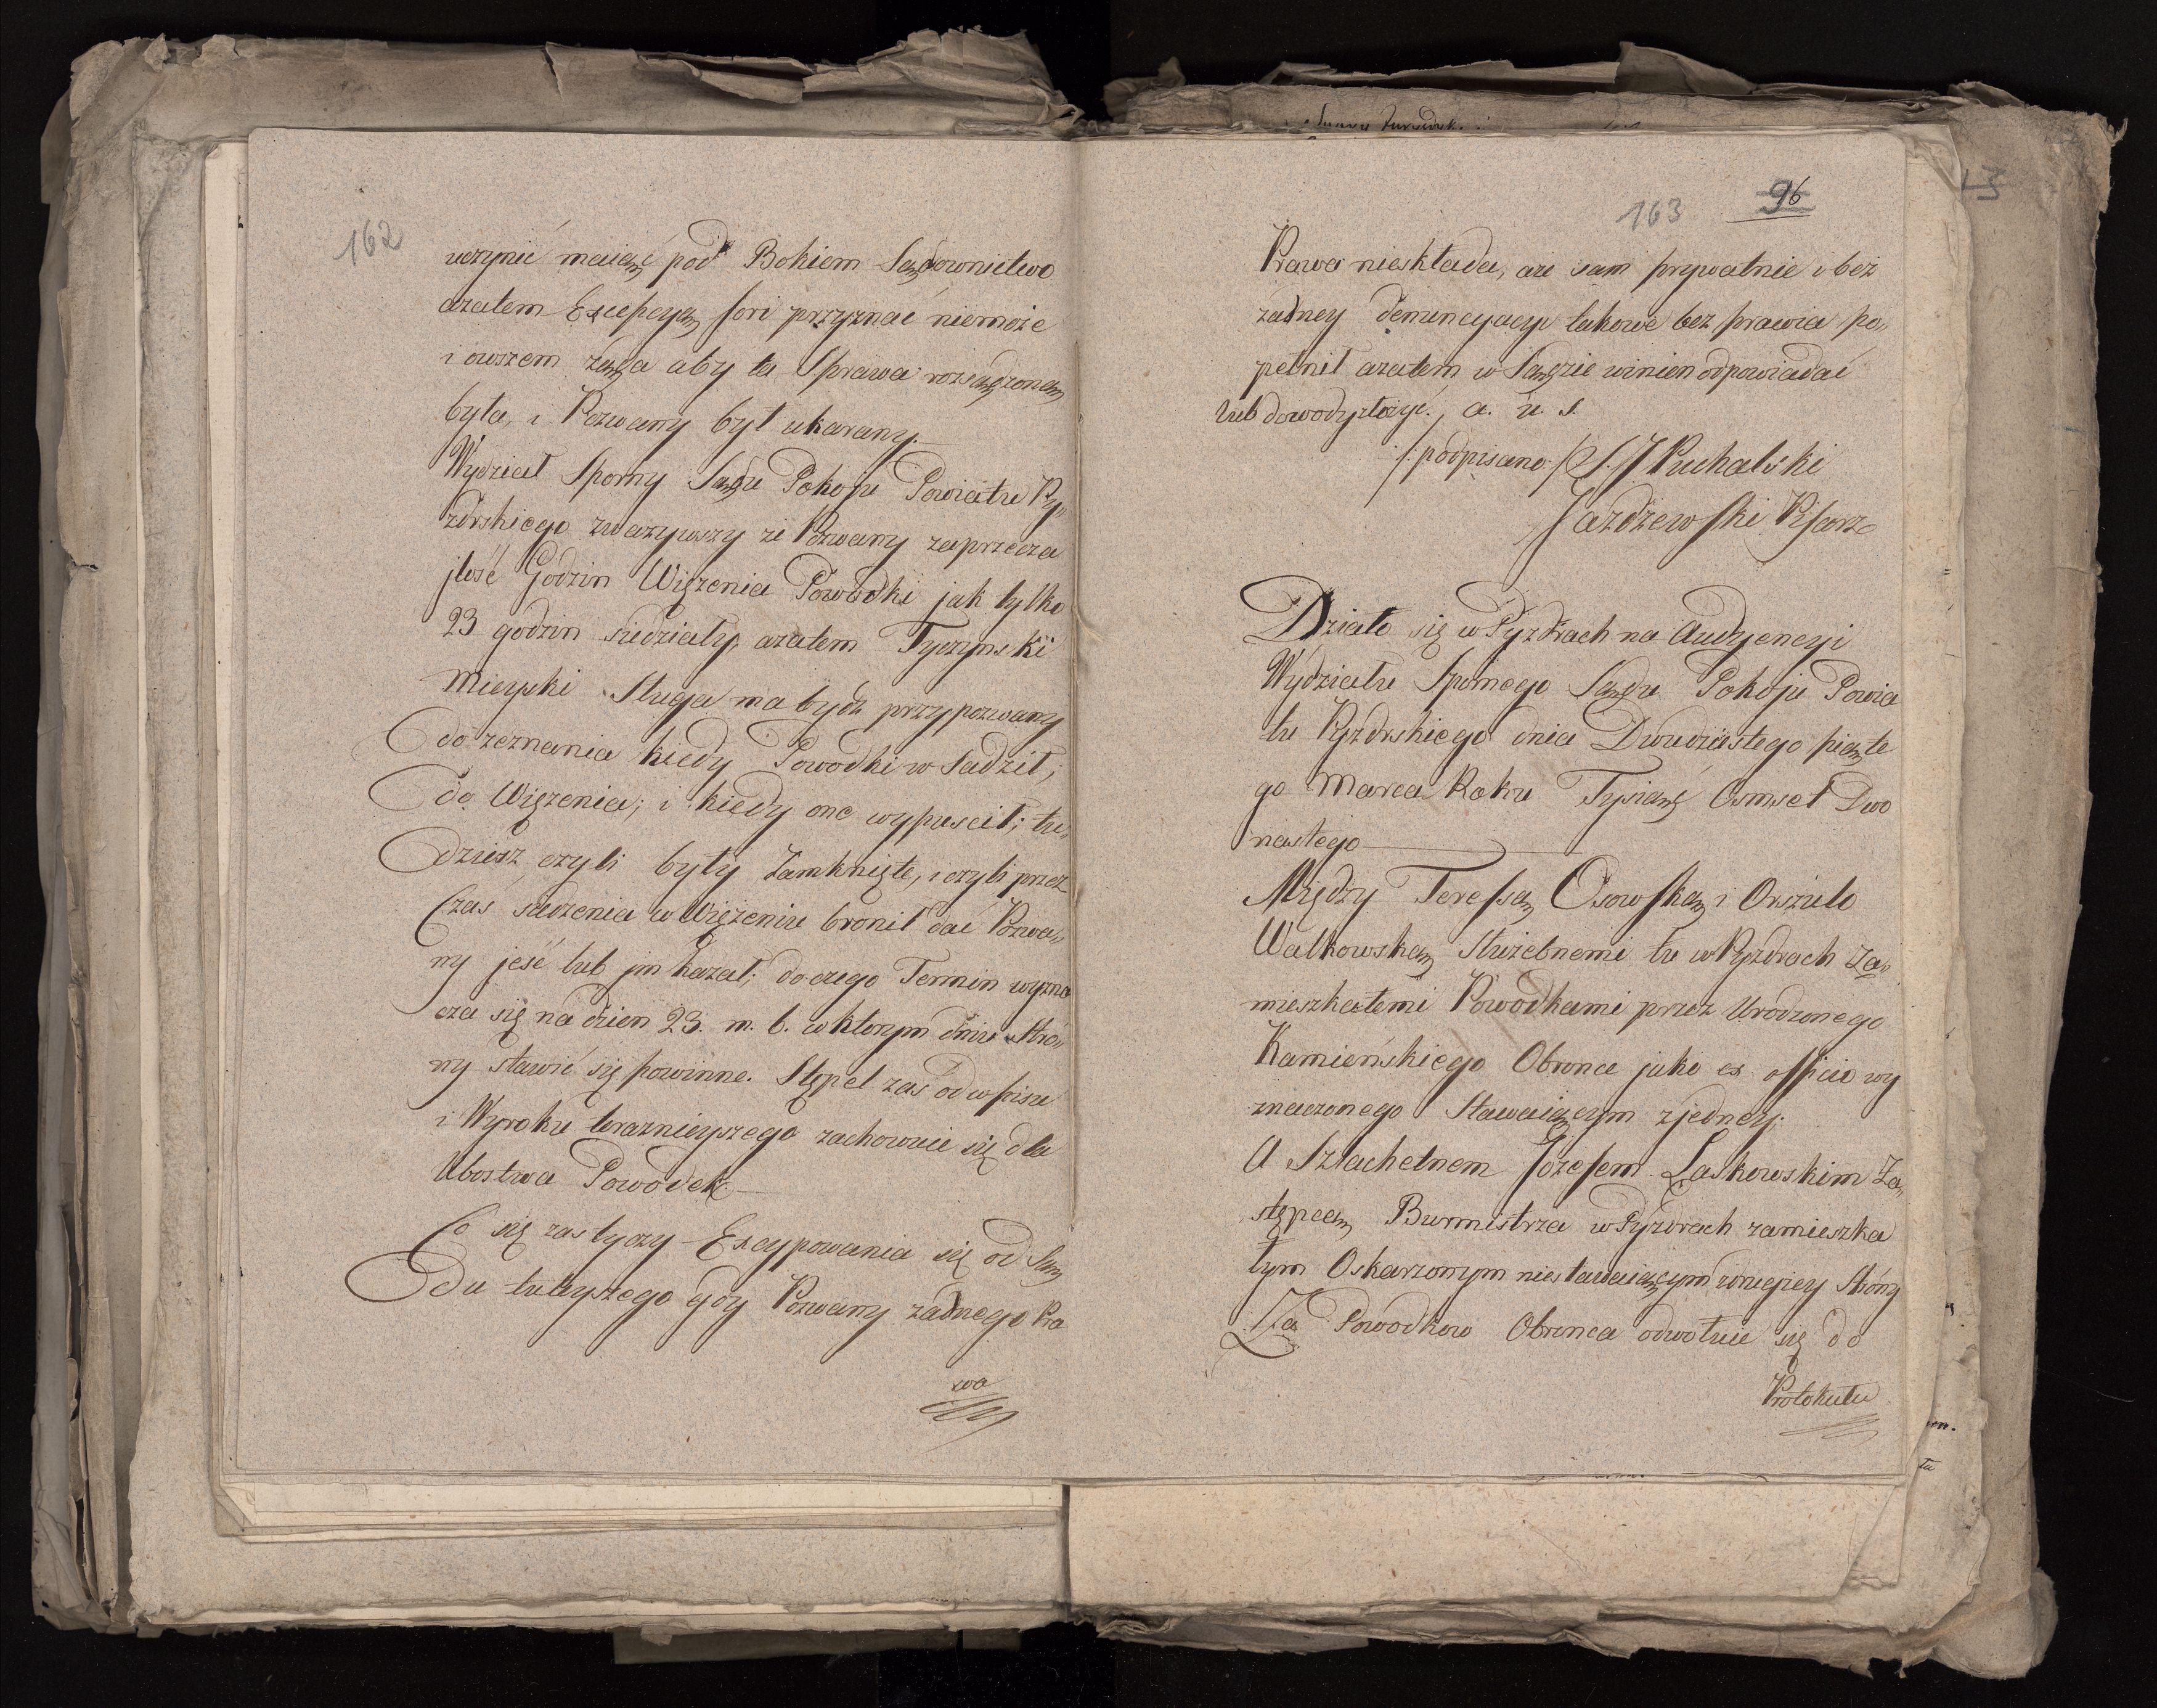 162
uczynić maiąc pod Bokiem Sądownictwo
azatem Excepcyą fori przyznać niemoże
i owszem żąda aby ta Sprawa rozsądzoną
była, i Pozwany był ukarany.—
Wydział Sporny Sądu Pokoju Powiatu Py„
zdrskiego zważywszy że Pozwany zaprzecza
jlość Godzin Więzenia Powodki jak tylko
23 godzin siedziały, azatem Tyczynski
Mieyski Sługa ma bydz przypozwany
do zeznania kiedy Powodki w Sadził,
do Więzenia; i kiedy one wypuscił; tu„
dziesz czyli były Zamknięte, i czyli przez
Czas sadzenia w Więzeniu bronił dać Pozwa„
ny jeść lub jm kazał; do czego Termin wyzna
cza się na dzien 23. m. b. w ktorym dniu Stro„
ny stawić się powinne. Stępel zaś od wpisu
i Wyroku teraznieyszego zachowuie się dla
Ubostwa Powodek.—
Co się zas tyczy Excypowania się od Są
du tuteyszego gdy Pozwany żadnego Pra
wa
163
96
Prawa nieskłada, aże sam prywatnie i bez
żadney denuncyacyi takowe bez prawia po„
pełnił azatem w Sądzie winien odpowiadać
lub dowody złożyć., a. u. s.
/:podpisano:/ S. J Puchalski
Jazdzewski Pisarz
Działo się w Pyzdrach na Audyencyi
Wydziału Spornego Sądu Pokoju Powia
tu Pyzdrskiego dnia Dwudziestego piąte
go Marca Roku Tysiąc Osmset Dwo
nastego
Między Teressą Osowską i Orszulo
Walkowską Służebnemi tu w Pyzdrach Za„
mieszkałemi Powodkami przez Urodzonego
Kamieńskiego Obronce jako ex officio wy
znaczonego Stawaiącym z jedney;
A Szlachetnem Józefem Laskowskim Za„
stępcą Burmistrza w Pyzdrach zamieszka
łym Oskarzonym niestawaiącym zdrugiey Stróny
Za Powódkow Obronca odwołuie się do
Protokułu